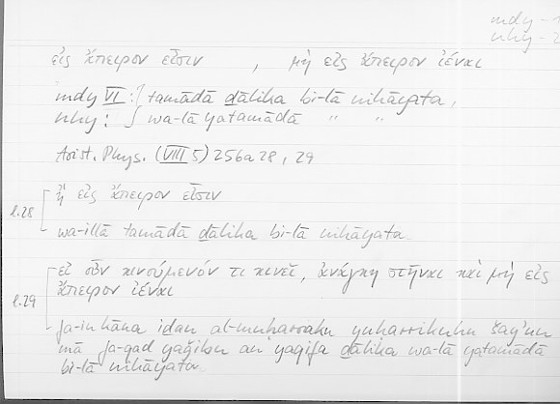 mdy -
nhy -
εἰς ἄπειρον εἶσιν , μὴ εἰς ἄπειρον ἰέναι
mdy VI : tamādā ḏālika bi-lā nihāyata,
nhy : wa-lā yatamādā " "
Arist. Phys. (VIII 5) 256a28, 29
l.28
ἢ εἰς ἄπειρον εἶσιν
wa-illā tamādā ḏālika bi-lā nihāyata
l.29
εἰ οὖν κινούμενόν τι κινεῖ, ἀνάγκη στῆναι καὶ μὴ εἰς
ἄπειρον ἰέναι
fa-in kāna iḏan al-muḥarraku yuḥarrikuhu šay'un
mā fa-qad yaǧibu an yaqifa ḏālika wa-lā yatamādā
bi-lā nihāyata.